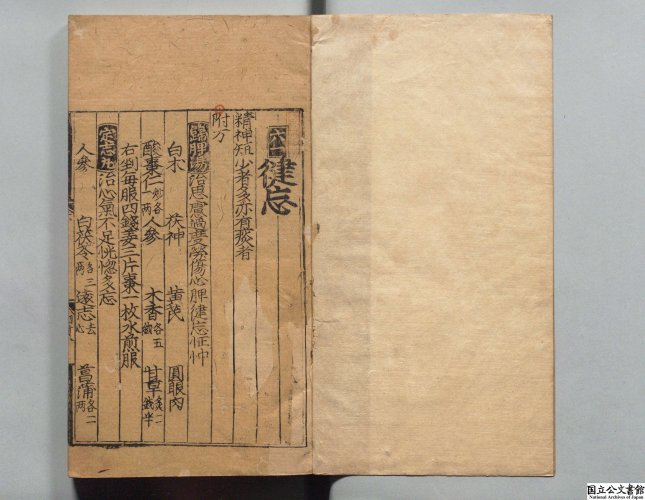 六十 健忘
精神短少者多亦有痰者
附方
歸脾湯治思慮過度勞傷心脾健忘怔忡
白朮 茯神 黃芪 圓眼肉
酸棗仁炒各一兩 人參 木香各五錢 甘草炙二錢半
右剉每服四錢姜三片棗一枚水煎服
定志丸治心氣不足恍惚多忘
人參 白茯苓各三兩 遠志去心 菖蒲各二兩
国立公文書館
National Archives of Japan